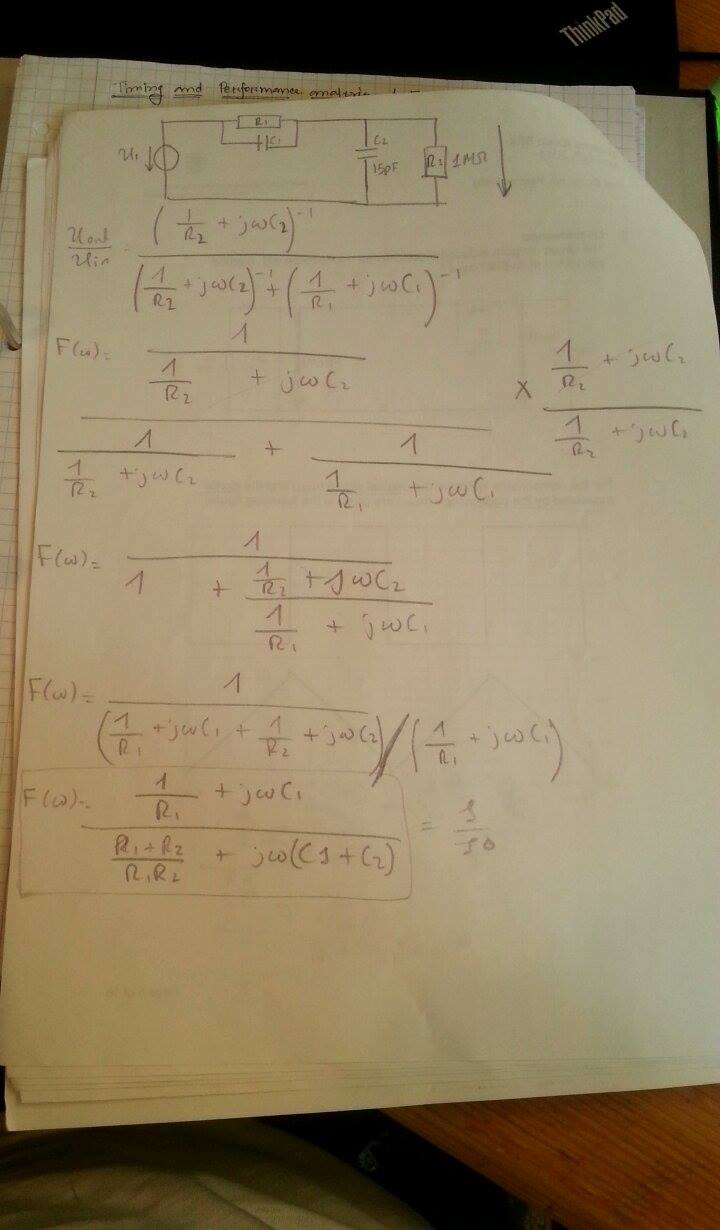 ThinkPad
Timing and Performance
R1
C1
U1
C2
15pF
R2 1MΩ
Uout/Uin = (1/R2 + jωC2)^-1 / ((1/R2 + jωC2)^-1 + (1/R1 + jωC1)^-1)
F(ω) = (1 / (1/R2 + jωC2)) / (1 / (1/R2 + jωC2) + 1 / (1/R1 + jωC1)) × (1/R2 + jωC2) / (1/R2 + jωC2)
F(ω) = 1 / (1 + (1/R2 + jωC2) / (1/R1 + jωC1))
F(ω) = 1 / (1/R1 + jωC1 + 1/R2 + jωC2) / (1/R1 + jωC1)
F(ω) = (1/R1 + jωC1) / ((R1+R2)/(R1R2) + jω(C1+C2)) = 1/10